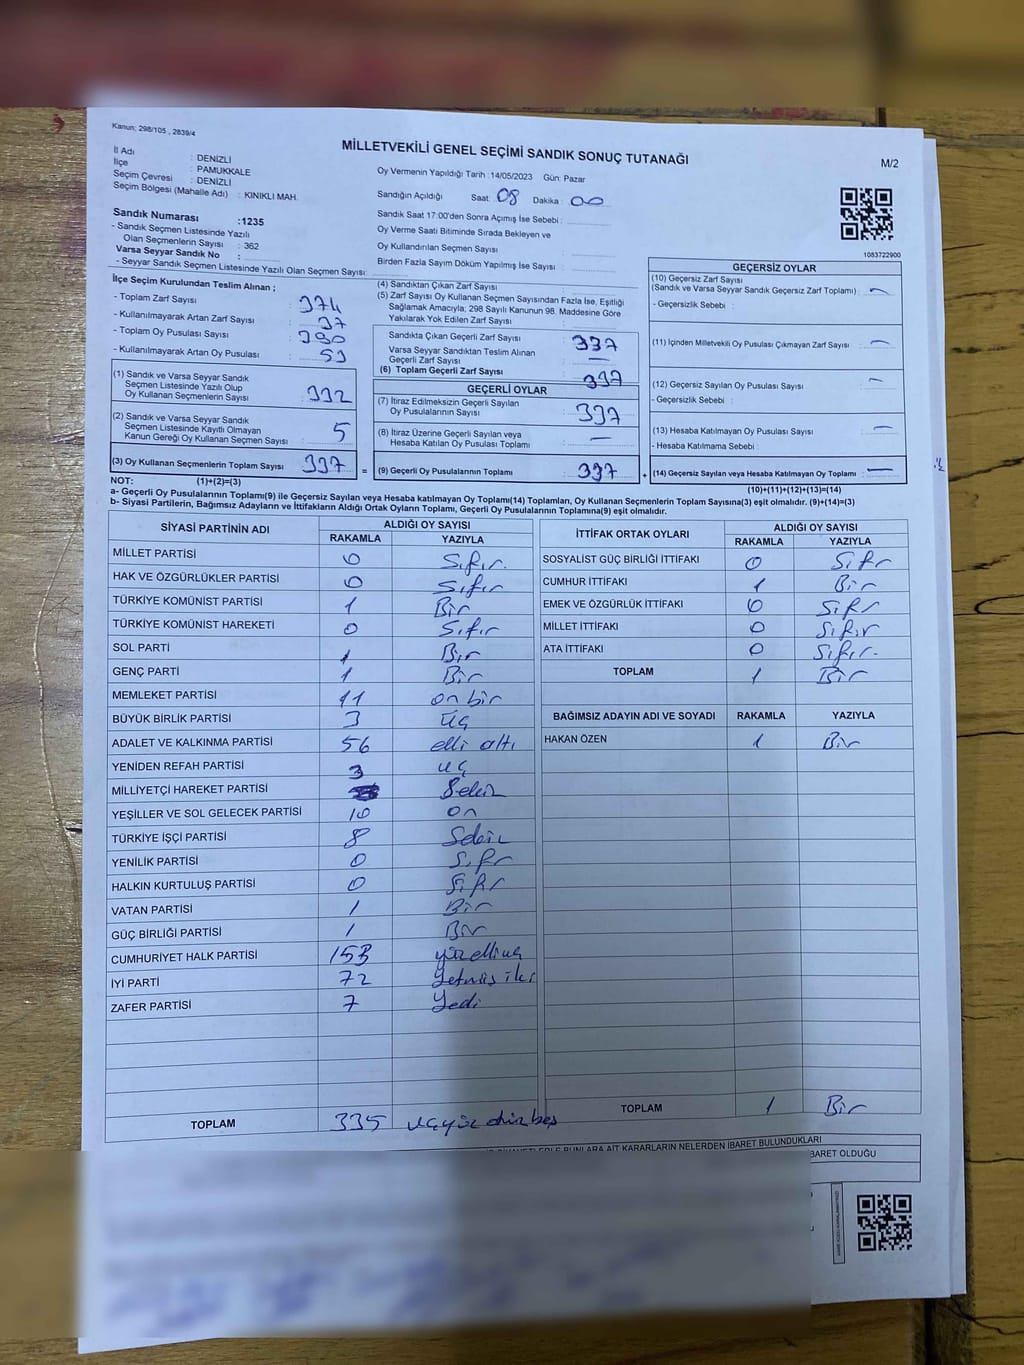 Kanun; 298/105 , 2839/4
MİLLETVEKİLİ GENEL SEÇİMİ SANDIK SONUÇ TUTANAĞI
M/2
İl Adı : DENİZLİ
İlçe : PAMUKKALE
Seçim Çevresi : DENİZLİ
Seçim Bölgesi (Mahalle Adı) : KINIKLI MAH.
Oy Vermenin Yapıldığı Tarih :14/05/2023 Gün: Pazar
Sandığın Açıldığı Saat: 08 Dakika : 00
Sandık Numarası :1235
- Sandık Seçmen Listesinde Yazılı
Olan Seçmenlerin Sayısı : 362
Varsa Seyyar Sandık No :
- Seyyar Sandık Seçmen Listesinde Yazılı Olan Seçmen Sayısı:
Sandık Saat 17:00'den Sonra Açımış İse Sebebi :
Oy Verme Saati Bitiminde Sırada Bekleyen ve
Oy Kullandırılan Seçmen Sayısı :
Birden Fazla Sayım Döküm Yapılmış İse Sayısı :
1083722900
İlçe Seçim Kurulundan Teslim Alınan ;
- Toplam Zarf Sayısı : 374
- Kullanılmayarak Artan Zarf Sayısı : 37
- Toplam Oy Pusulası Sayısı : 390
- Kullanılmayarak Artan Oy Pusulası : 53
(1) Sandık ve Varsa Seyyar Sandık
Seçmen Listesinde Yazılı Olup
Oy Kullanan Seçmenlerin Sayısı : 332
(2) Sandık ve Varsa Seyyar Sandık
Seçmen Listesinde Kayıtlı Olmayan
Kanun Gereği Oy Kullanan Seçmen Sayısı : 5
(3) Oy Kullanan Seçmenlerin Toplam Sayısı : 337
(4) Sandıktan Çıkan Zarf Sayısı :
(5) Zarf Sayısı Oy Kullanan Seçmen Sayısından Fazla İse, Eşitliği
Sağlamak Amacıyla; 298 Sayılı Kanunun 98. Maddesine Göre
Yakılarak Yok Edilen Zarf Sayısı :
Sandıkta Çıkan Geçerli Zarf Sayısı : 337
Varsa Seyyar Sandıktan Teslim Alınan
Geçerli Zarf Sayısı : —
(6) Toplam Geçerli Zarf Sayısı : 337
GEÇERLİ OYLAR
(7) İtiraz Edilmeksizin Geçerli Sayılan
Oy Pusulalarının Sayısı : 337
(8) İtiraz Üzerine Geçerli Sayılan veya
Hesaba Katılan Oy Pusulası Toplamı : —
= (9) Geçerli Oy Pusulalarının Toplamı : 337
GEÇERSİZ OYLAR
(10) Geçersiz Zarf Sayısı
(Sandık ve Varsa Seyyar Sandık Geçersiz Zarf Toplamı) : —
- Geçersizlik Sebebi :
(11) İçinden Milletvekili Oy Pusulası Çıkmayan Zarf Sayısı : —
(12) Geçersiz Sayılan Oy Pusulası Sayısı : —
- Geçersizlik Sebebi :
(13) Hesaba Katılmayan Oy Pusulası Sayısı : —
- Hesaba Katılmama Sebebi :
+ (14) Geçersiz Sayılan veya Hesaba Katılmayan Oy Toplamı : —
NOT: (1)+(2)=(3)
(10)+(11)+(12)+(13)=(14)
a- Geçerli Oy Pusulalarının Toplamı(9) ile Geçersiz Sayılan veya Hesaba katılmayan Oy Toplamı(14) Toplamları, Oy Kullanan Seçmenlerin Toplam Sayısına(3) eşit olmalıdır. (9)+(14)=(3)
b- Siyasi Partilerin, Bağımsız Adayların ve İttifakların Aldığı Ortak Oyların Toplamı, Geçerli Oy Pusulalarının Toplamına(9) eşit olmalıdır.
SİYASİ PARTİNİN ADI ALDIĞI OY SAYISI
RAKAMLA YAZIYLA
MİLLET PARTİSİ 0 Sıfır.
HAK VE ÖZGÜRLÜKLER PARTİSİ 0 Sıfır
TÜRKİYE KOMÜNİST PARTİSİ 1 Bir
TÜRKİYE KOMÜNİST HAREKETİ 0 Sıfır
SOL PARTİ 1 Bir
GENÇ PARTİ 1 Bir
MEMLEKET PARTİSİ 11 on bir
BÜYÜK BİRLİK PARTİSİ 3 üç
ADALET VE KALKINMA PARTİSİ 56 elli altı
YENİDEN REFAH PARTİSİ 3 üç
MİLLİYETÇİ HAREKET PARTİSİ Sekiz
YEŞİLLER VE SOL GELECEK PARTİSİ 10 on
TÜRKİYE İŞÇİ PARTİSİ 8 Sekiz
YENİLİK PARTİSİ 0 Sıfır
HALKIN KURTULUŞ PARTİSİ 0 Sıfır
VATAN PARTİSİ 1 Bir
GÜÇ BİRLİĞİ PARTİSİ 1 Bir
CUMHURİYET HALK PARTİSİ 153 yüzelliüç
İYİ PARTİ 72 Yetmiş iki
ZAFER PARTİSİ 7 Yedi
TOPLAM 335 üçyüz otuzbeş
İTTİFAK ORTAK OYLARI ALDIĞI OY SAYISI
RAKAMLA YAZIYLA
SOSYALİST GÜÇ BİRLİĞİ İTTİFAKI 0 Sıfır
CUMHUR İTTİFAKI 1 Bir
EMEK VE ÖZGÜRLÜK İTTİFAKI 0 Sıfır
MİLLET İTTİFAKI 0 Sıfır
ATA İTTİFAKI 0 Sıfır.
TOPLAM 1 Bir
BAĞIMSIZ ADAYIN ADI VE SOYADI RAKAMLA YAZIYLA
HAKAN ÖZEN 1 Bir
TOPLAM 1 Bir
BUNLARA AİT KARARLARIN NELERDEN İBARET BULUNDUKLARI
BARET OLDUĞU